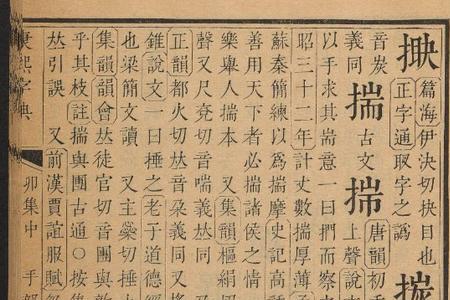 篇海伊決切抉目也
正字通取字之譌
音炭
義同
揣
古文
唐韻初
上聲說
以手求其耑意一曰捫而察
昭三十二年計丈數揣厚薄
蘇秦簡練以爲揣摩史記高
善用天下者必揣諸侯之情
樂舉人揣本 又集韻樞絹
聲又尺兗切音喘義𠀤同
正韻都火切𠀤音朶義同又
錐說文一曰捶之老子道德
也梁簡文讀 又主橤切
集韻韻會𠀤徒官切音團與
乎其枝註揣與團古通○按集
𠀤引誤 又前漢賈誼服賦
康熙字典 卯集中 手部